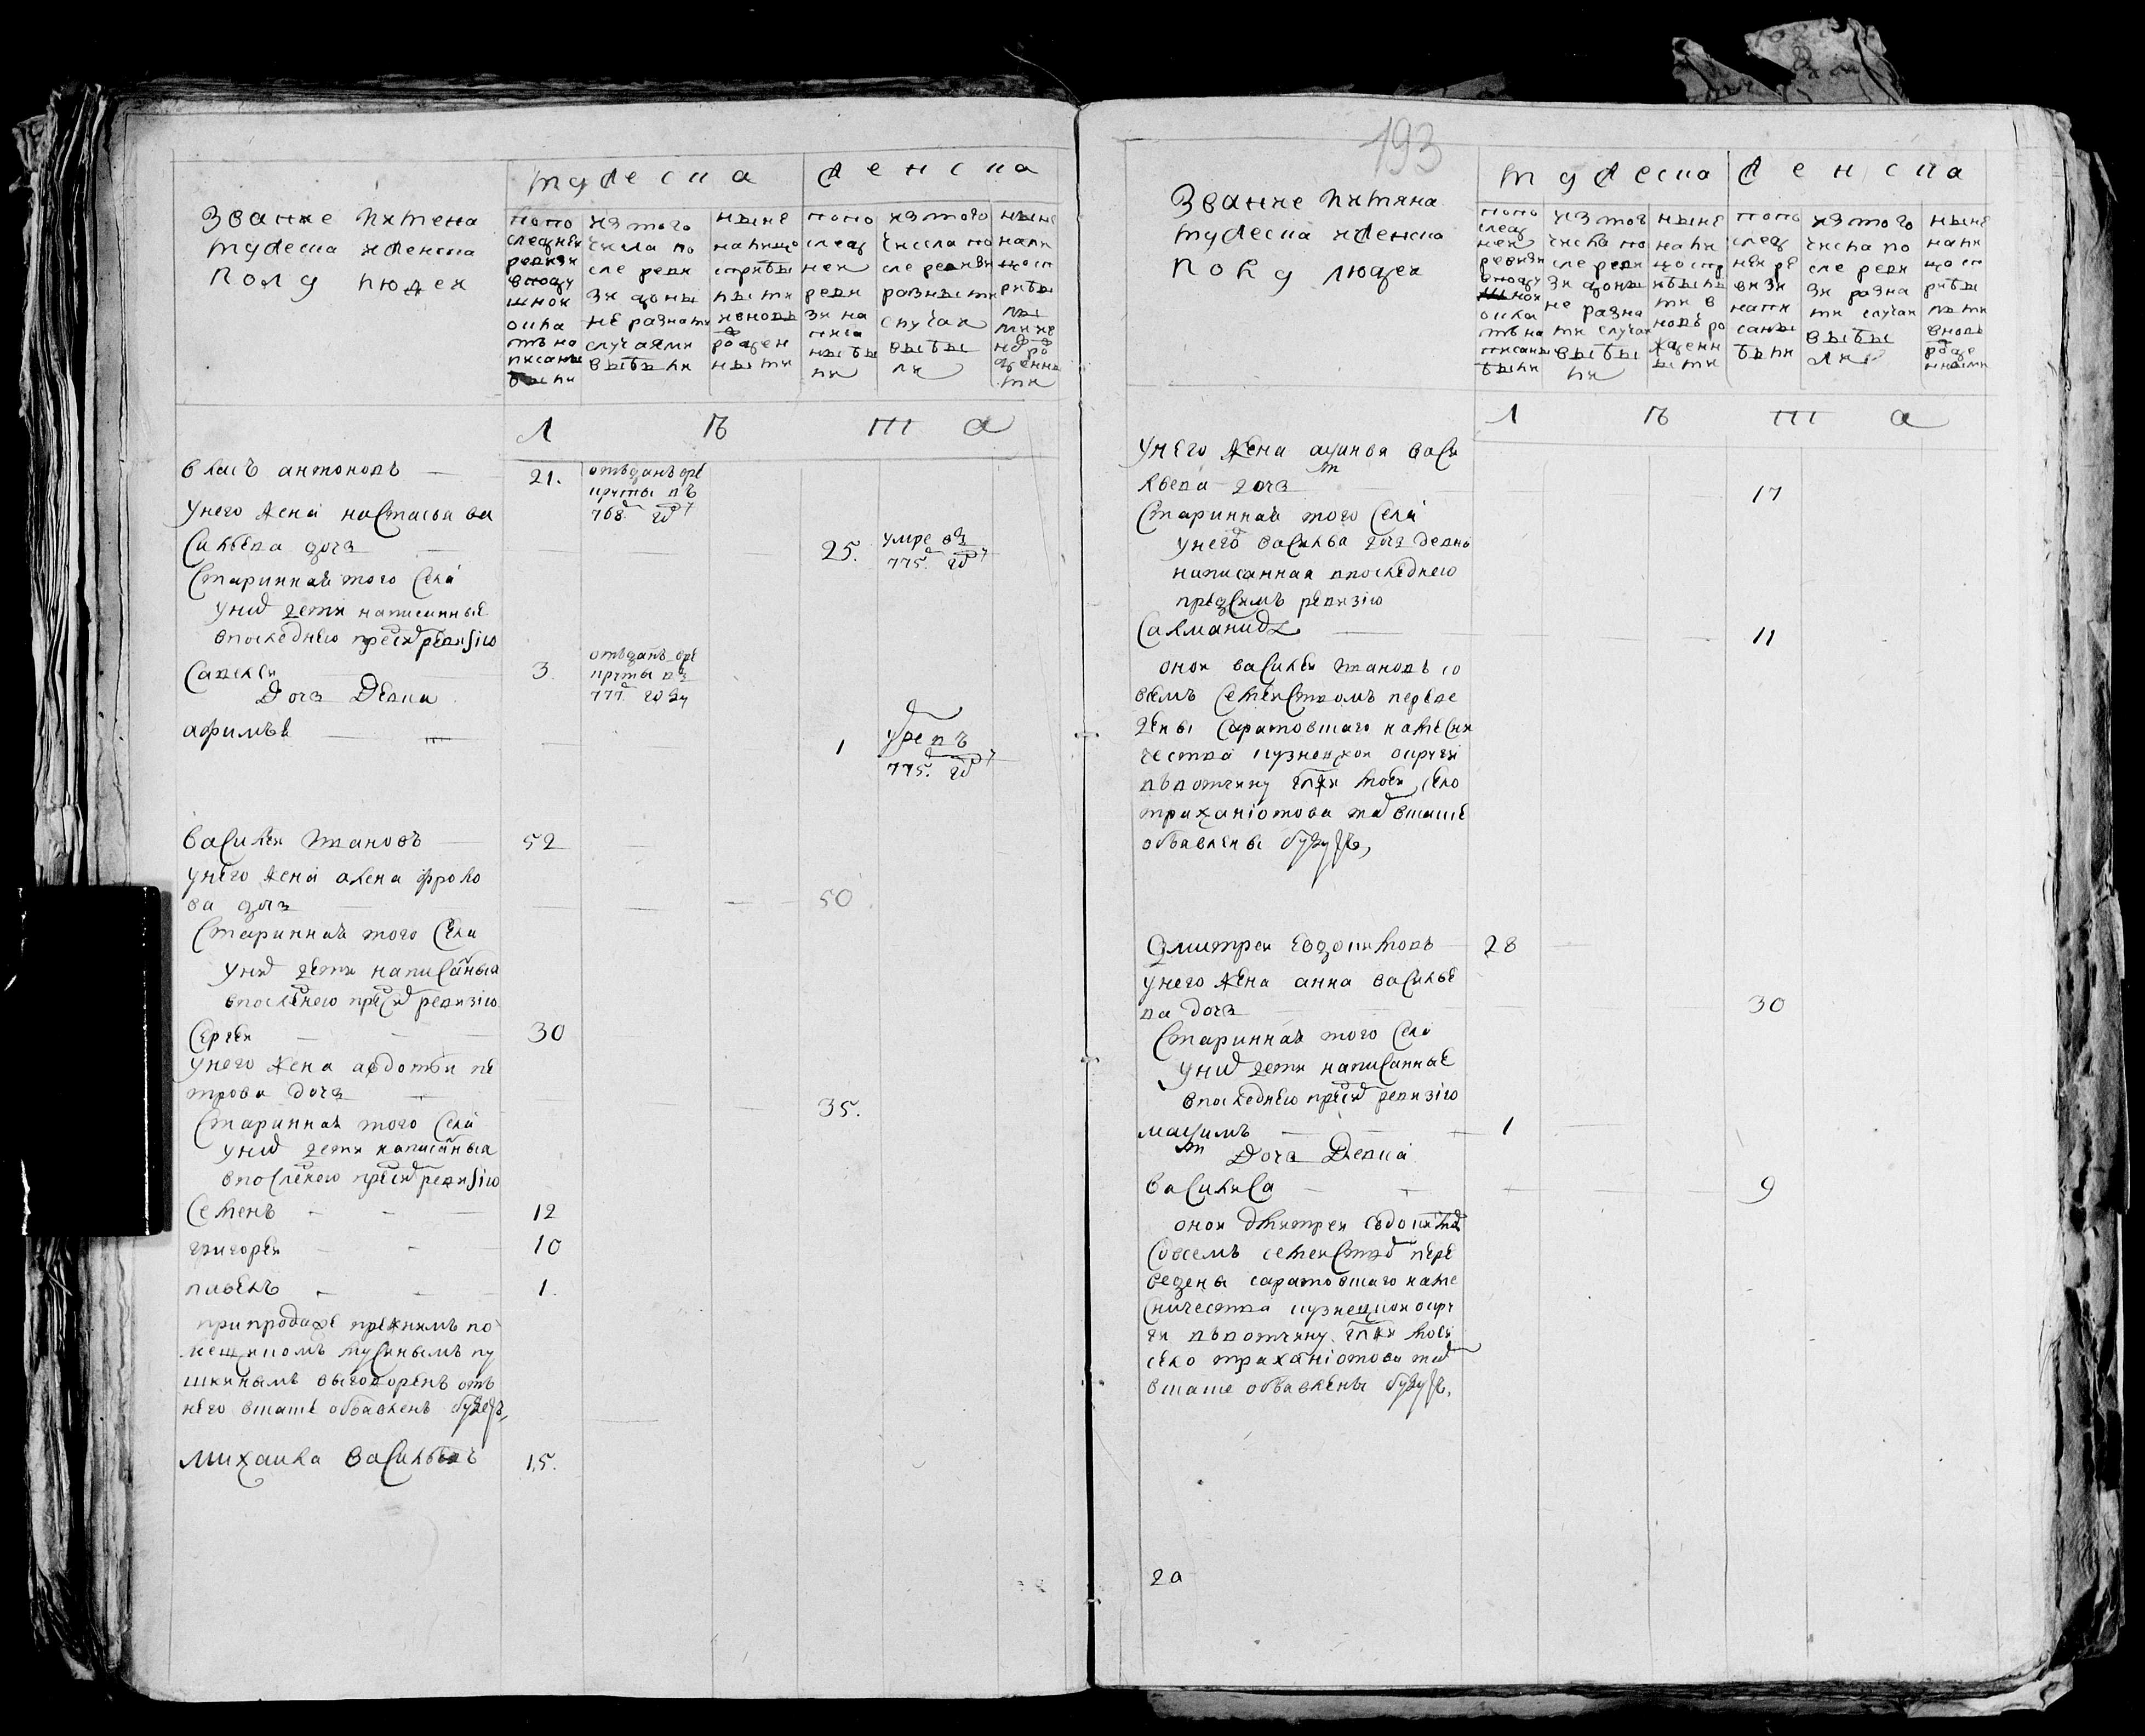 мужеска
женска
Звание имена
мужеска и женска
полу людей
попо
следней
ревизии
вподу
шной
окла
тъ на
писаны
были
из того
числа по
сле реви
зии доны
не разными
случаями
выбыли
ныне
налицо
сприбы
лыми
и вновь
рожден
ными
попо
след
ней
реви
зии на
писа
ны бы
ли
из того
числа по
сле ревизи
разными
случаи
выбы
ли
ныне
нали
цо сп
рибы
лы
ми и
но ро
жденны
ми
Л ѣ т а
власъ антоновъ
21.
отъданъ вре
круты въ
768 год
унего жена настасья ва
сильева дочь
25.
умре въ
775 году
старинная того села
у них дети написанные
впоследнею пред сим ревизию
савелеи
3
отъданъ вре
круты въ
777 году
дочь девка
афимья
1
умре въ
775 году
василеи ивановъ
52
унего жена алена фроло
ва дочь
50
старинная того села
у них дети написаныа
впоследнею пред сим ревизию
сергеи
30
унего жена авдотьи пе
трова дочь
35.
старинная того села
у них дети написаныа
впоследнею пред сим ревизию
семенъ
12
григореи
10
павелъ
1.
при продаже прежнимъ по
мещикомъ мусинымъ пу
шкинымъ выговоренъ отъ
него вшаше объявленъ будетъ,
михаила васильевъ
15.
193
мужеска
женска
Звание имяна
мужеска и женска
полу людей
попо
след
ней
ревизии
вподу
шной
окла
тъ на
писаны
были
из того
числа по
сле реви
зии доны
не разны
ми случаи
выбы
ли
ныне
нали
цо спр
ибылы
ми в
новь ро
жденн
ыми
попо
след
ней ре
визи
напи
саны
были
из того
числа по
сле реви
зии разны
ми случаи
выбы
ли
ныне
нали
цо сп
рибы
лыми
вновь
рожде
нными
Л ѣ т а
унего жена акулина васи
льева дочь
17
старинная того села
у него васильа дочь девка
написанная впоследнею
предсимъ ревизию
саламанида
11
оной василеи ивановъ со
всемъ семействомъ переве
дены саратовшаго намесни
чества кузнецкой округи
въвотчину мою село
траханіотова там вшаше
объявлены будутъ,
дмитреи евдокимовъ
28
унего жена анна василье
ва дочь
30
старинная того села
у них дети написанные
впоследнею пред сим ревизию
макъсимъ
1
дочь девка
василиса
9
оной дмитреи евдокимов
совсемъ семейством пере
ведены саратовшаго наме
сничества кузнецкой окру
ги въвотчину мою
село траханіотова там
вшаше объявлены будутъ,
2а